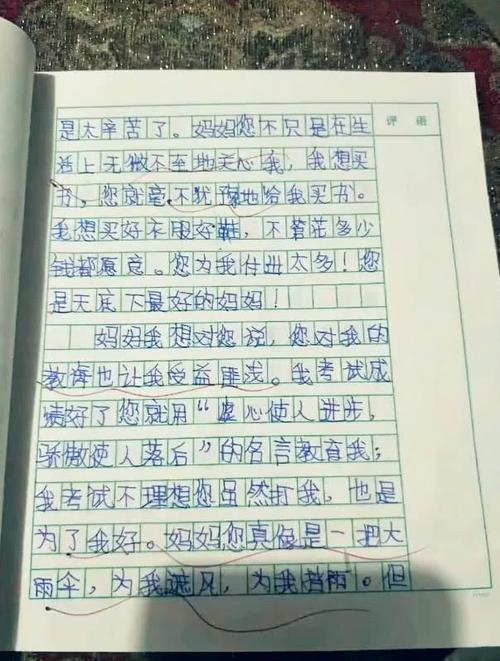 评 语
是太辛苦了。妈妈您不只是在生
活上无微不至地关心我，我想买
书，您就毫不犹豫地给我买书。
我想买好衣服好鞋，不管花多少
钱都愿意。您为我付出太多！您
是天底下最好的妈妈！
妈妈我想对您说，您对我的
教诲也让我受益匪浅。我考试成
绩好了您就用“虚心使人进步，
骄傲使人落后”的名言教育我；
我考试不理想您虽然打我，也是
为了我好。妈妈您真像是一把大
雨伞，为我遮风，为我挡雨。但